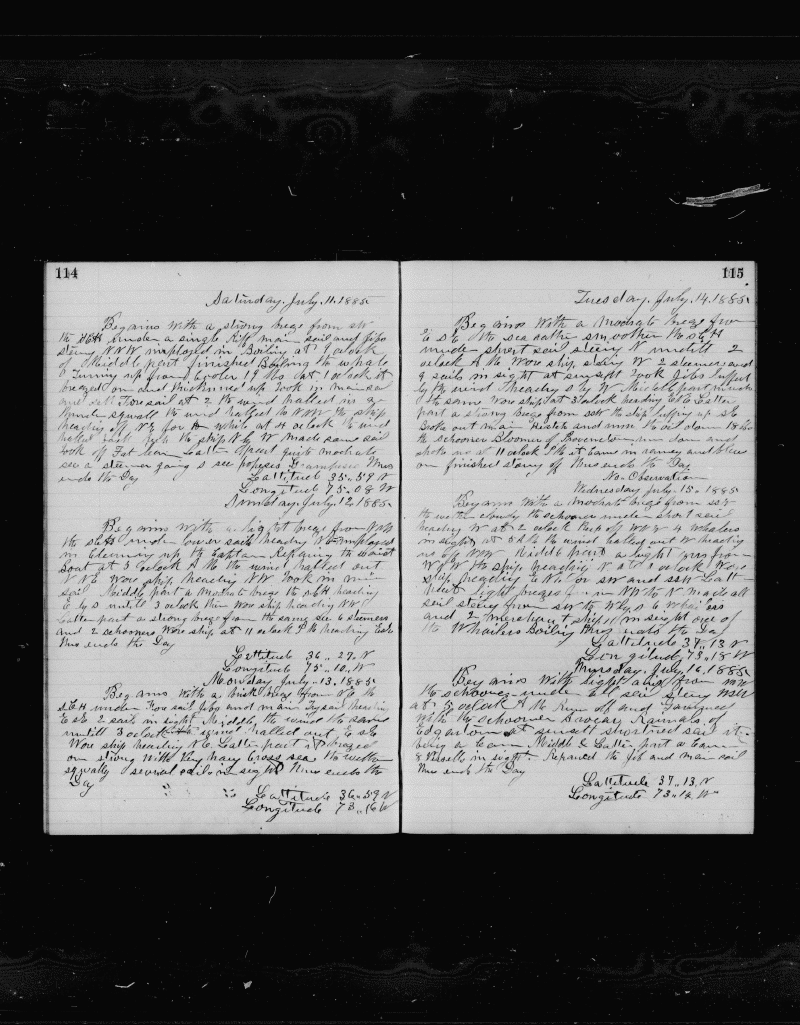 114
Saturday, July, 11, 1885
Begains with a strong breze from SW
the sch under a single main sail and
steering NNW imployed in Boiling at 7 oclock
of Middle part finished Boiling the whale
up from cooler at 1 oclock it
brezed on and thickned up took in mainsa
and set Foresail at 2 the wind halled in a
squall the wind halled to NNW the ship
heading off NE for a while at 4 oclock the wind
halled back the ship N by W made some sail
took off Latter part quite modrate
see a steamer going S see Thus
ends the Day Lattitude 35,,59 N
Longitude 75,,08 W
Sunday, July, 12, 1885
Begains with a light breze from
the sch under lower sails heading imployed
in cleaning up the Captain Repairing the waist
Boat at 3 oclock P M the wind halled out
N N E Wore ship heading NW Took in main
sail Middle part a Modrate breze the sch heading
E by S untill 3 oclock then Wore ship heading NW
Latter part a strong breze from the same see 6 steamers
and 2 schooners Wore ship at 11 oclock heading
Thus ends the Day
Lattitude 36,,29, N
Longitude 75,,10, W
Monday July, 13, 1885
Begains with a brisk breze from N E the
sch under Fore sail Jibs and main Trysail heading
E SE 2 sails in sight Middle, the wind the same
untill 3 oclock wind halled out, E SE
Wore ship heading N E Latter part brezed
on strong with Very heavy Cross sea the weather
squally several sails in sight Thus ends the
Day
Lattitude 36,,59 N
Longitude 73,,16 W
115
Tuesday, July, 14, 1885
Begains with a Modrate breze from
E SE the sea rather smoother the sch
under short sail steering N untill 2
oclock P M Wore ship steering W 2 steamers and
9 sails in sight at sunset took Jibs
by the wind heading S by W Middle part
the same Wore ship at 3 oclock heading Latter
part a strong breze from the ship
Broke out main Hatch and the oil down
the schooner Bloomer of Provincetown down and
spoke us at 11 oclock
our finished Thus ends the Day
No Observation
Wednesday July, 15, 1885
Begains with a Modrate breze from SSE
the wether cloudy the schooner under short sail
heading W at 2 oclock Kept off 4 Whalers
in sight, at 5 P M the wind halled out W heading
Middle part a light from
W by N the ship heading N at 1 oclock Wore
ship heading from SW and SSW Latter
part light brezes from NW to N made all
sail steering from SW to W by S 6 Whalers
and 2 Merchant ship in sight one of
the Whalers Boiling Thus ends the Day
Lattitude 37,,13 N
Longitude 73,,18 W
Thursday, July, 16, 1885
Begains with light airs from
the schooner under all sail steering WSW
at 5 oclock P M
with the schooner of
Edgartown at sunset shortned sail it
being a Calm Middle & Latter part a Calm
8 Vessells in sight Repaired the Jib and main sail
Thus ends the Day
Lattitude 37,,13, N
Longitude 73,,12, W